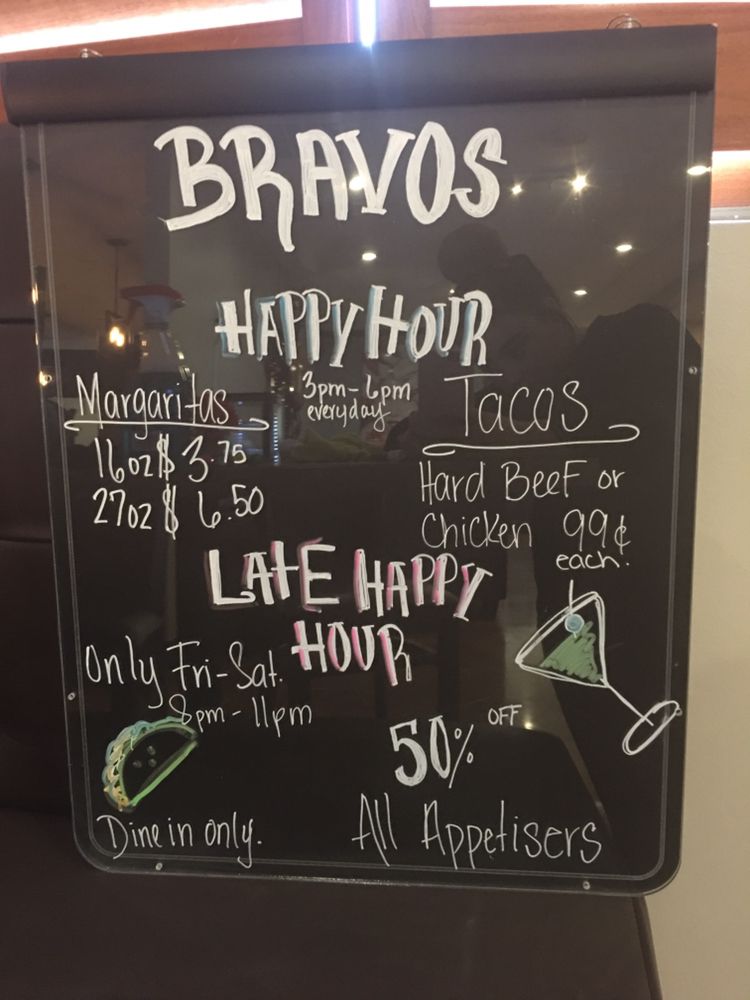 BRAVOS
HAPPY HOUR
3pm-6pm
everyday
Margaritas
16oz $3.75
27oz $6.50
Tacos
Hard Beef or
Chicken 99¢
each.
LATE HAPPY
HOUR
Only Fri-Sat.
8pm-11pm
50% OFF
All Appetisers
Dine in only.